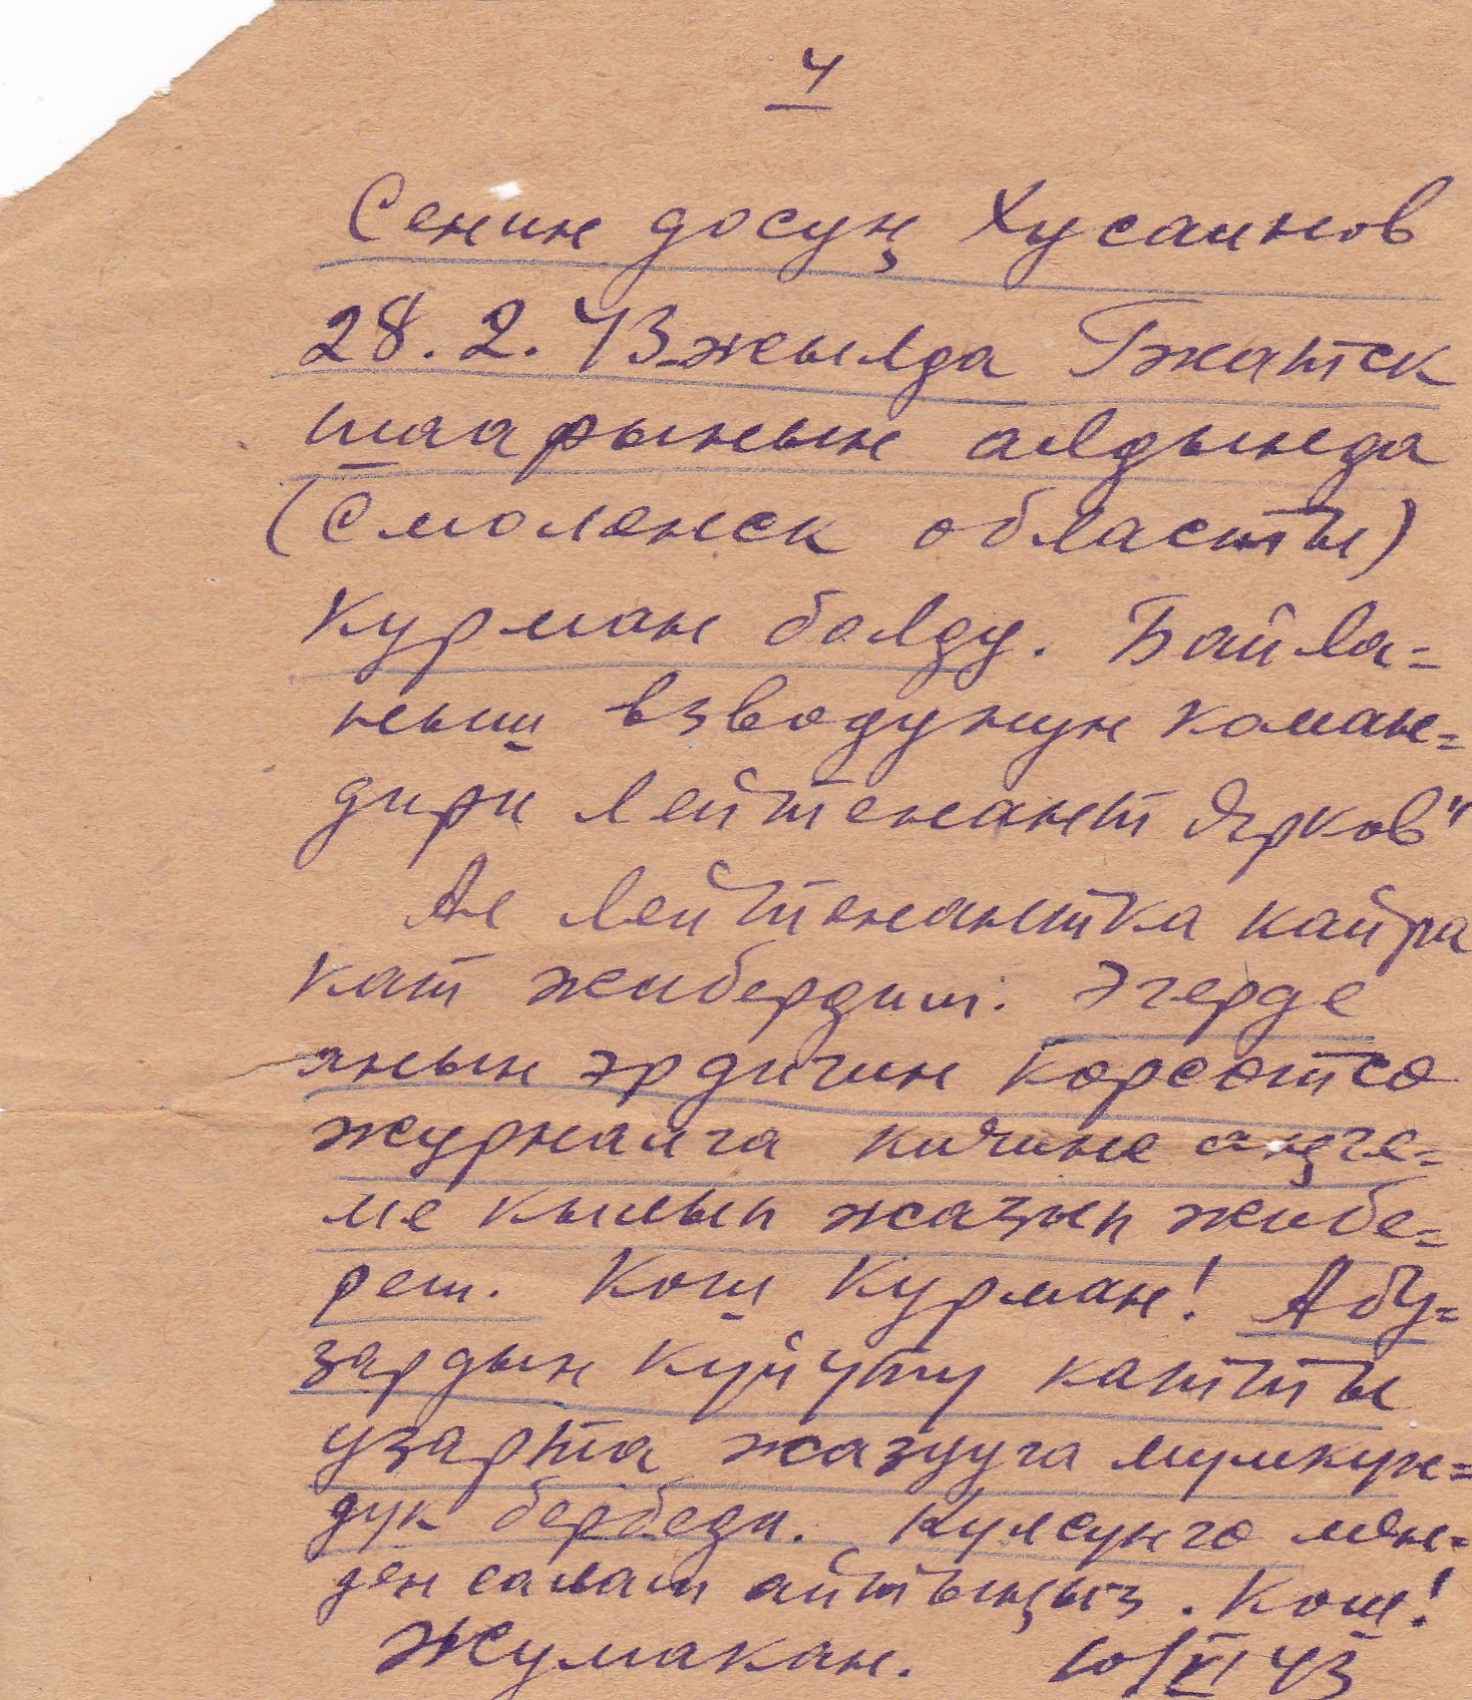 4
Сенин досуң Хусаинов
28.2.43-жылда Гжатск
шаарынын алдында
(Смоленск областы)
Курман болду. Байла=
ныш взводунун коман=
дири лейтенант Ярков"
Ал лейтенантка кайра
кат жибердим. Эгерде
анын эрдигин көрсөтсө
журналга кичине аңге=
ме кылып жазып жибе=
рем. Кош Курман! Абу=
зардын күйүтү катты
узарта жазууга мумкүн=
дүк бербеди. Кулсунго мен=
ден салам айтыңыз. Кош!
Жумакан. 10/VI 43